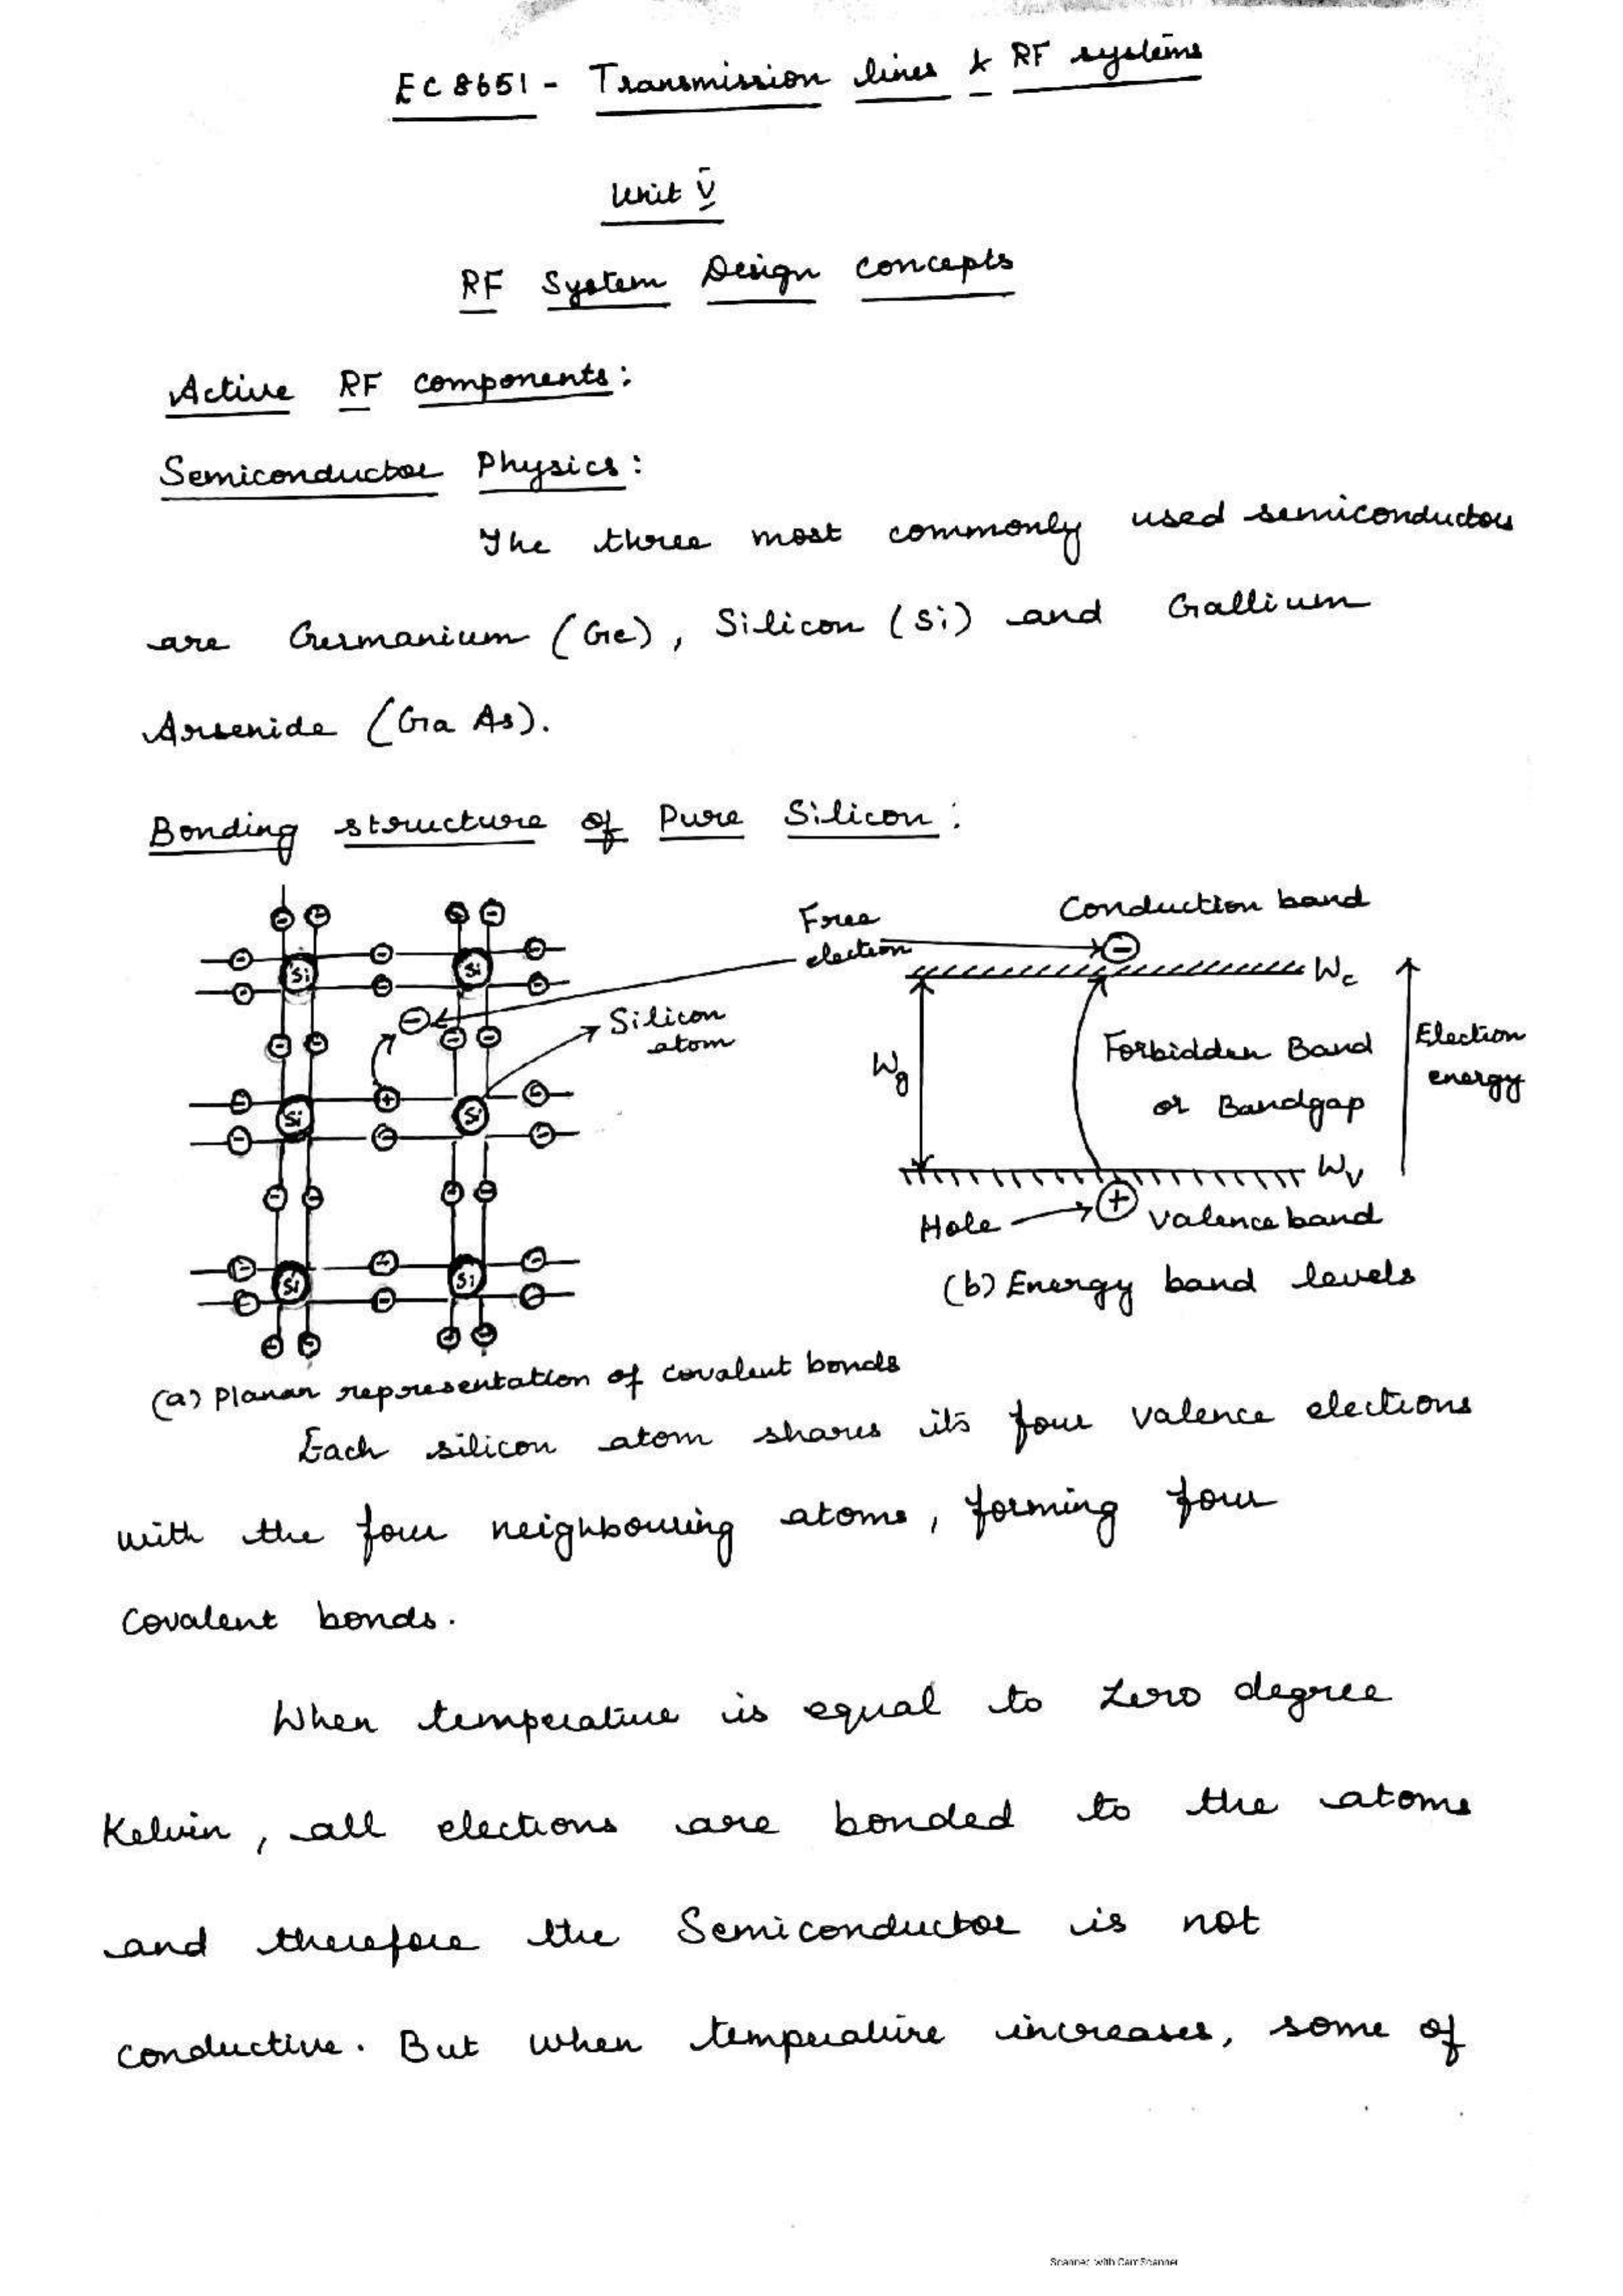 EC 8651 - Transmission lines & RF systems
Unit V
RF System Design concepts
Active RF components:
Semiconductor Physics:
The three most commonly used semiconductors
are Germanium (Ge), Silicon (Si) and Gallium
Arsenide (Ga As).
Bonding structure of Pure Silicon:
Free electron
Silicon atom
Si
Si
Si
Si
Si
Si
(a) Planar representation of covalent bonds
Conduction band
Wc
Wg
Forbidden Band
or Bandgap
Electron
energy
Wv
Hole
Valence band
(b) Energy band levels
Each silicon atom shares its four valence electrons
with the four neighbouring atoms, forming four
covalent bonds.
When temperature is equal to zero degree
Kelvin, all electrons are bonded to the atoms
and therefore the Semiconductor is not
conductive. But when temperature increases, some of
Scanned with CamScanner